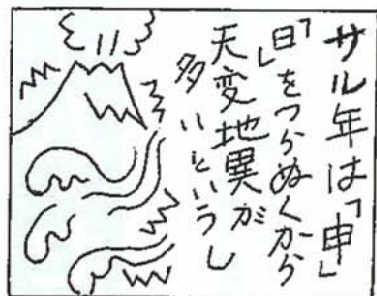 サル年は「申」
「日」をつらぬくから
天変地異が
多いというし